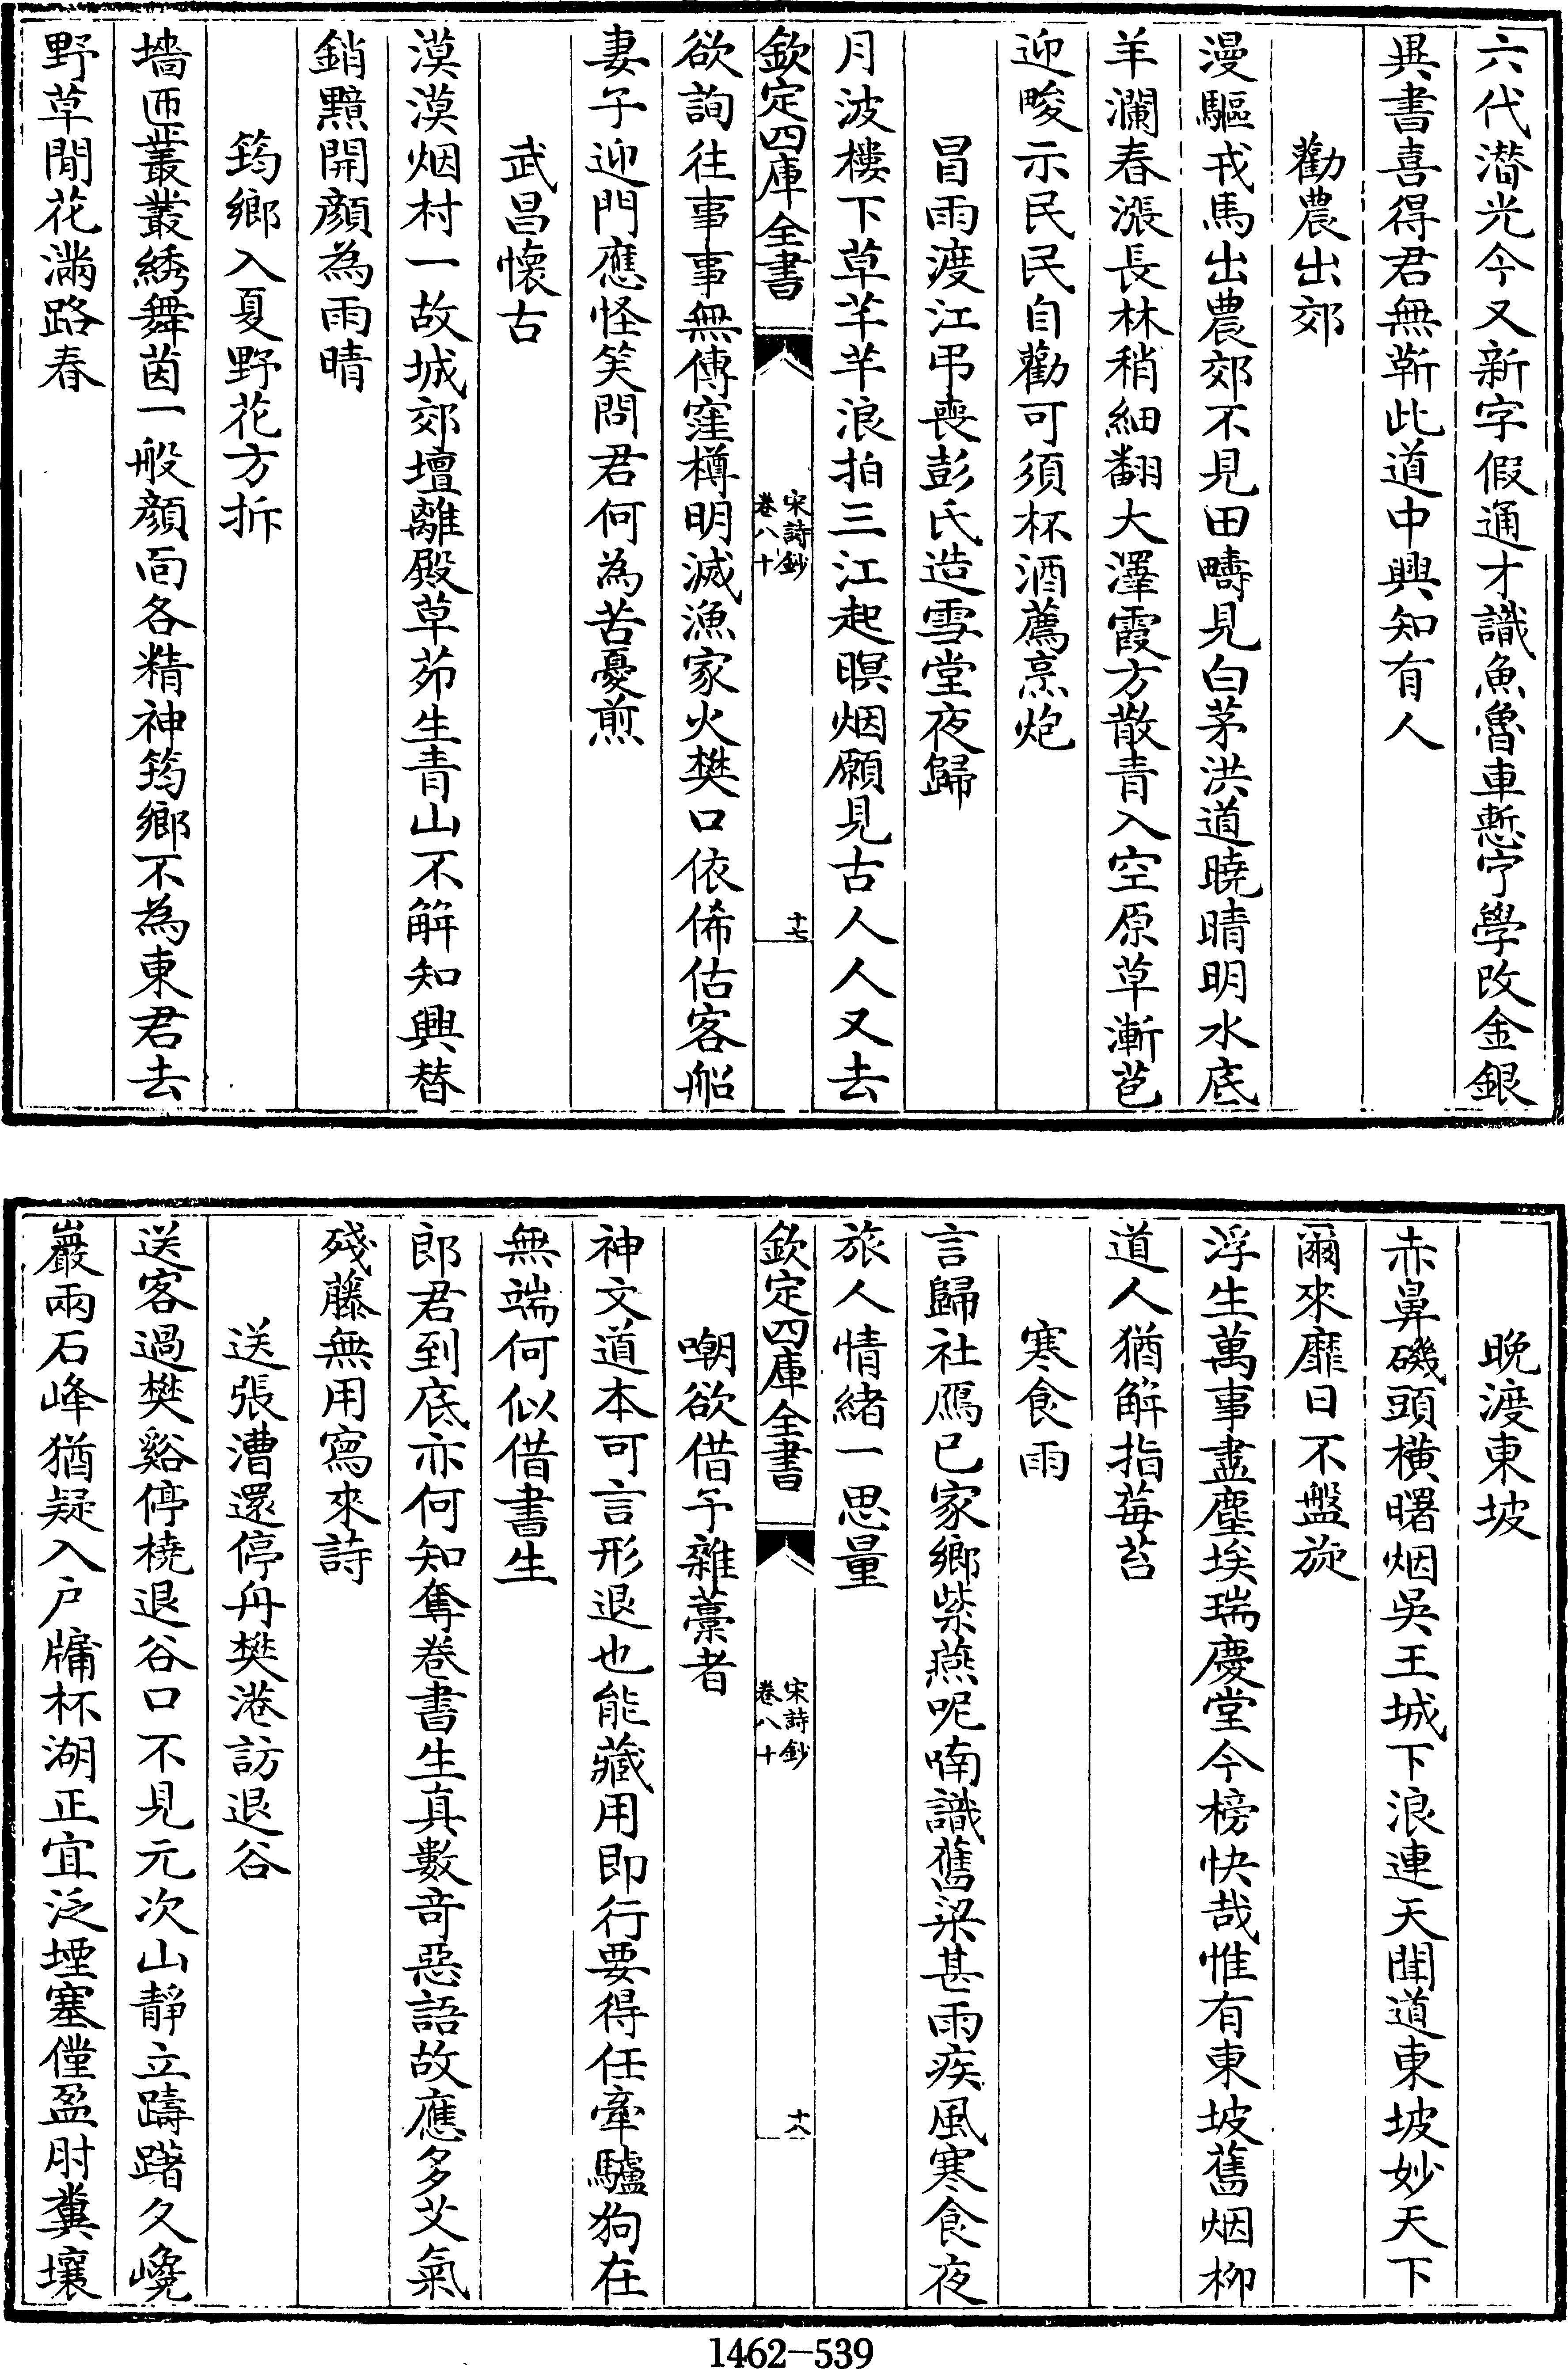 六代潛光今又新字假通才識魚魯車慙宁學改金銀
異書喜得君無靳此道中興知有人
勸農出郊
漫驅戎馬出農郊不見田疇見白茅洪道曉晴明水底
羊瀾春漲長林稍細翻大澤霞方散青入空原草漸苞
迎畯示民民自勸可須杯酒薦烹炮
冒雨渡江弔喪彭氏造雪堂夜歸
月波樓下草芊芊浪拍三江起暝烟願見古人人又去
欽定四庫全書
宋詩鈔
卷八十
十七
欲詢往事事無傳窪樽明滅漁家火樊口依俙估客船
妻子迎門應怪笑問君何為苦憂煎
武昌懷古
漠漠烟村一故城郊壇離殿草茆生青山不解知興替
銷黯開顏為雨晴
筠鄉入夏野花方拆
墻匝叢叢綉舞茵一般顏面各精神筠鄉不為東君去
野草閒花滿路春
晚渡東坡
赤鼻磯頭橫曙烟吳王城下浪連天聞道東坡妙天下
爾來靡日不盤旋
浮生萬事盡塵埃瑞慶堂今榜快哉惟有東坡舊烟柳
道人猶解指莓苔
寒食雨
言歸社鴈已家鄉紫燕呢喃識舊梁甚雨疾風寒食夜
旅人情緒一思量
欽定四庫全書
宋詩鈔
卷八十
十八
嘲欲借予雜藁者
神文道本可言形退也能藏用即行要得任牽驢狗在
無端何似借書生
郎君到底亦何知奪卷書生真數奇惡語故應多艾氣
殘藤無用寫來詩
送張漕還停舟樊港訪退谷
送客過樊谿停橈退谷口不見元次山靜立躊躇久巉
巖兩石峰猶疑入户牖杯湖正宜泛堙塞儻盈肘糞壤
1462-539